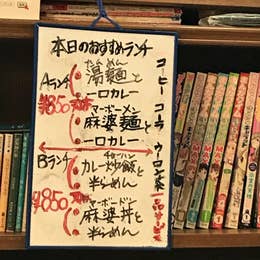 本日のおすすめランチ
Aランチ
¥850
たんめん
湯麺と
一口カレー
マーボーメン
麻婆麺と
一口カレー
Bランチ
¥850
チャーハン
カレー炒飯と
半らーめん
マーボードン
麻婆丼と
半らーめん
コーヒー コーラ ウーロン茶 一品サービス